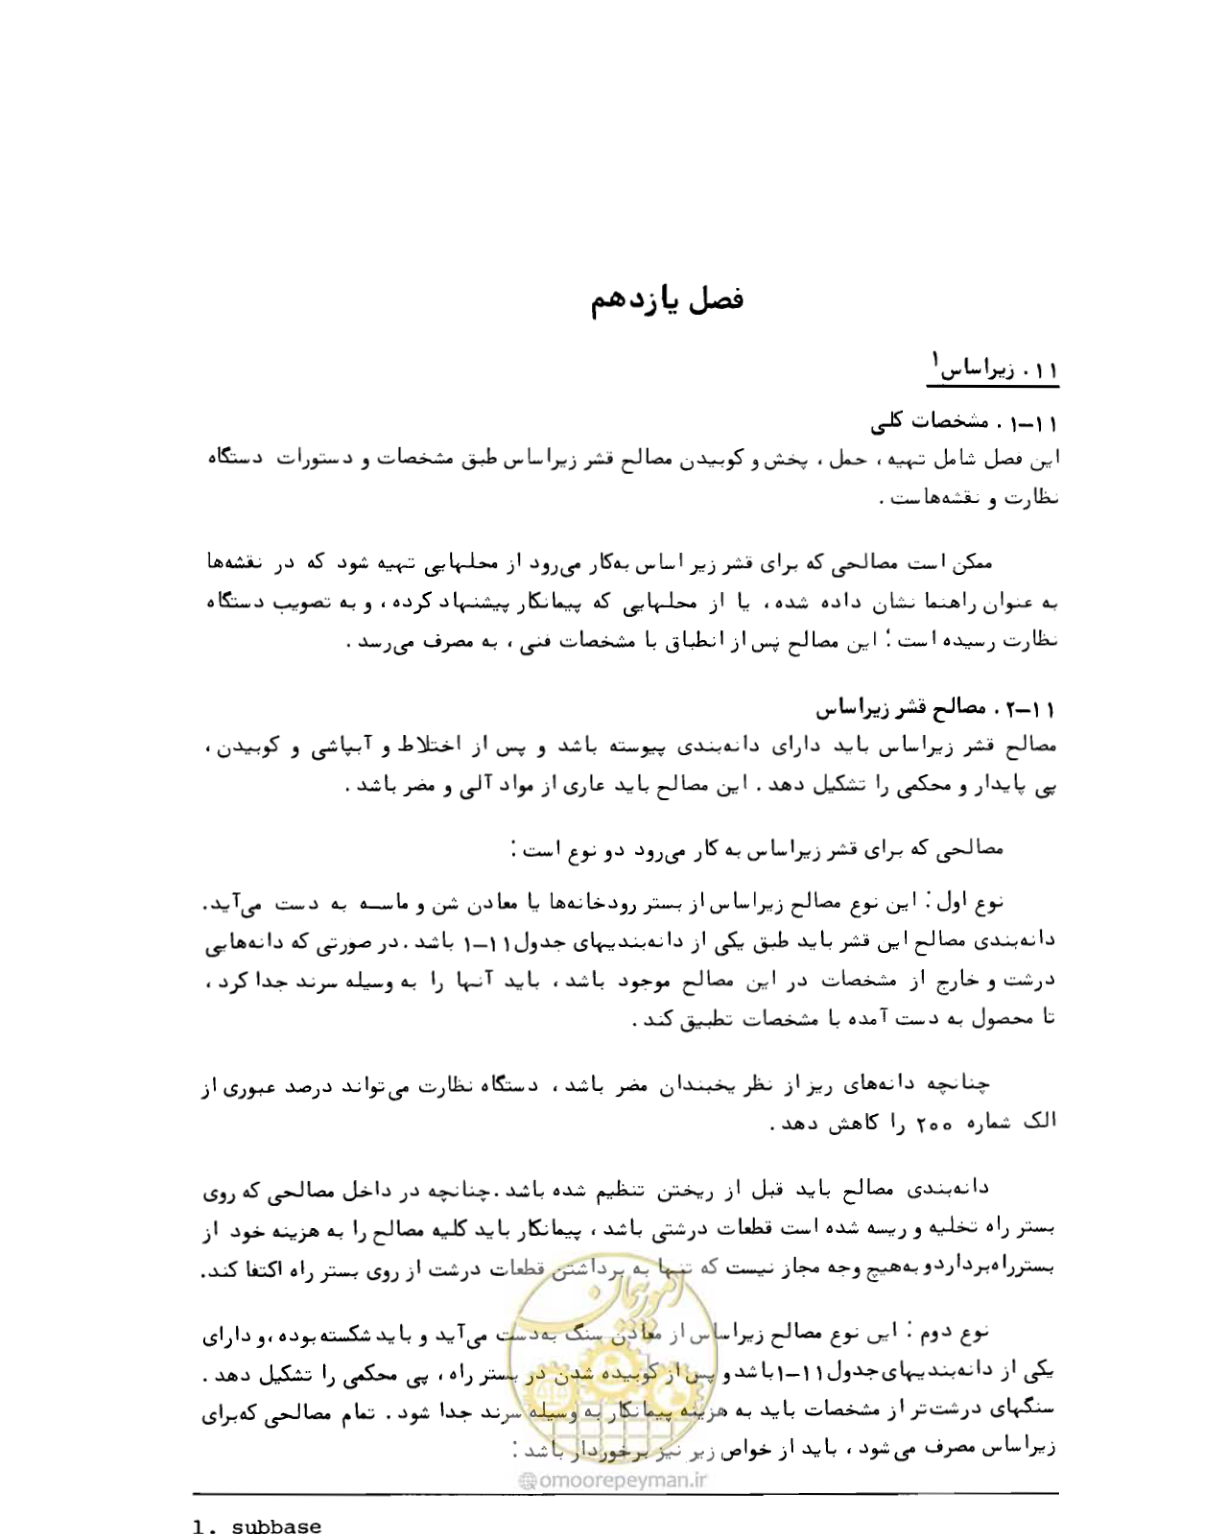 فصل یازدهم
۱۱. زیراساس۱
۱۱–۱. مشخصات کلی
این فصل شامل تهیه، حمل، پخش و کوبیدن مصالح قشر زیراساس طبق مشخصات و دستورات دستگاه
نظارت و نقشه‌هاست.
ممکن است مصالحی که برای قشر زیر اساس به‌کار می‌رود از محلهایی تهیه شود که در نقشه‌ها
به عنوان راهنما نشان داده شده، یا از محلهایی که پیمانکار پیشنهاد کرده، و به تصویب دستگاه
نظارت رسیده است؛ این مصالح پس از انطباق با مشخصات فنی، به مصرف می‌رسد.
۱۱–۲. مصالح قشر زیراساس
مصالح قشر زیراساس باید دارای دانه‌بندی پیوسته باشد و پس از اختلاط و آبپاشی و کوبیدن،
پی پایدار و محکمی را تشکیل دهد. این مصالح باید عاری از مواد آلی و مضر باشد.
مصالحی که برای قشر زیراساس به کار می‌رود دو نوع است:
نوع اول: این نوع مصالح زیراساس از بستر رودخانه‌ها یا معادن شن و ماسه به دست می‌آید.
دانه‌بندی مصالح این قشر باید طبق یکی از دانه‌بندیهای جدول ۱۱–۱ باشد. در صورتی که دانه‌هایی
درشت و خارج از مشخصات در این مصالح موجود باشد، باید آنها را به وسیله سرند جدا کرد،
تا محصول به دست آمده با مشخصات تطبیق کند.
چنانچه دانه‌های ریز از نظر یخبندان مضر باشد، دستگاه نظارت می‌تواند درصد عبوری از
الک شماره ۲۰۰ را کاهش دهد.
دانه‌بندی مصالح باید قبل از ریختن تنظیم شده باشد. چنانچه در داخل مصالحی که روی
بستر راه تخلیه و ریسه شده است قطعات درشتی باشد، پیمانکار باید کلیه مصالح را به هزینه خود از
بستر راه بردارد و به‌هیچ وجه مجاز نیست که تنها به برداشتن قطعات درشت از روی بستر راه اکتفا کند.
نوع دوم: این نوع مصالح زیراساس از معادن سنگ به‌دست می‌آید و باید شکسته بوده، و دارای
یکی از دانه‌بندیهای جدول ۱۱–۱ باشد و پس از کوبیده شدن در بستر راه، پی محکمی را تشکیل دهد.
سنگهای درشت‌تر از مشخصات باید به هزینه پیمانکار به وسیله سرند جدا شود. تمام مصالحی که برای
زیراساس مصرف می‌شود، باید از خواص زیر نیز برخوردار باشد:
امور پیمان
@omoorepeyman.ir
1. subbase